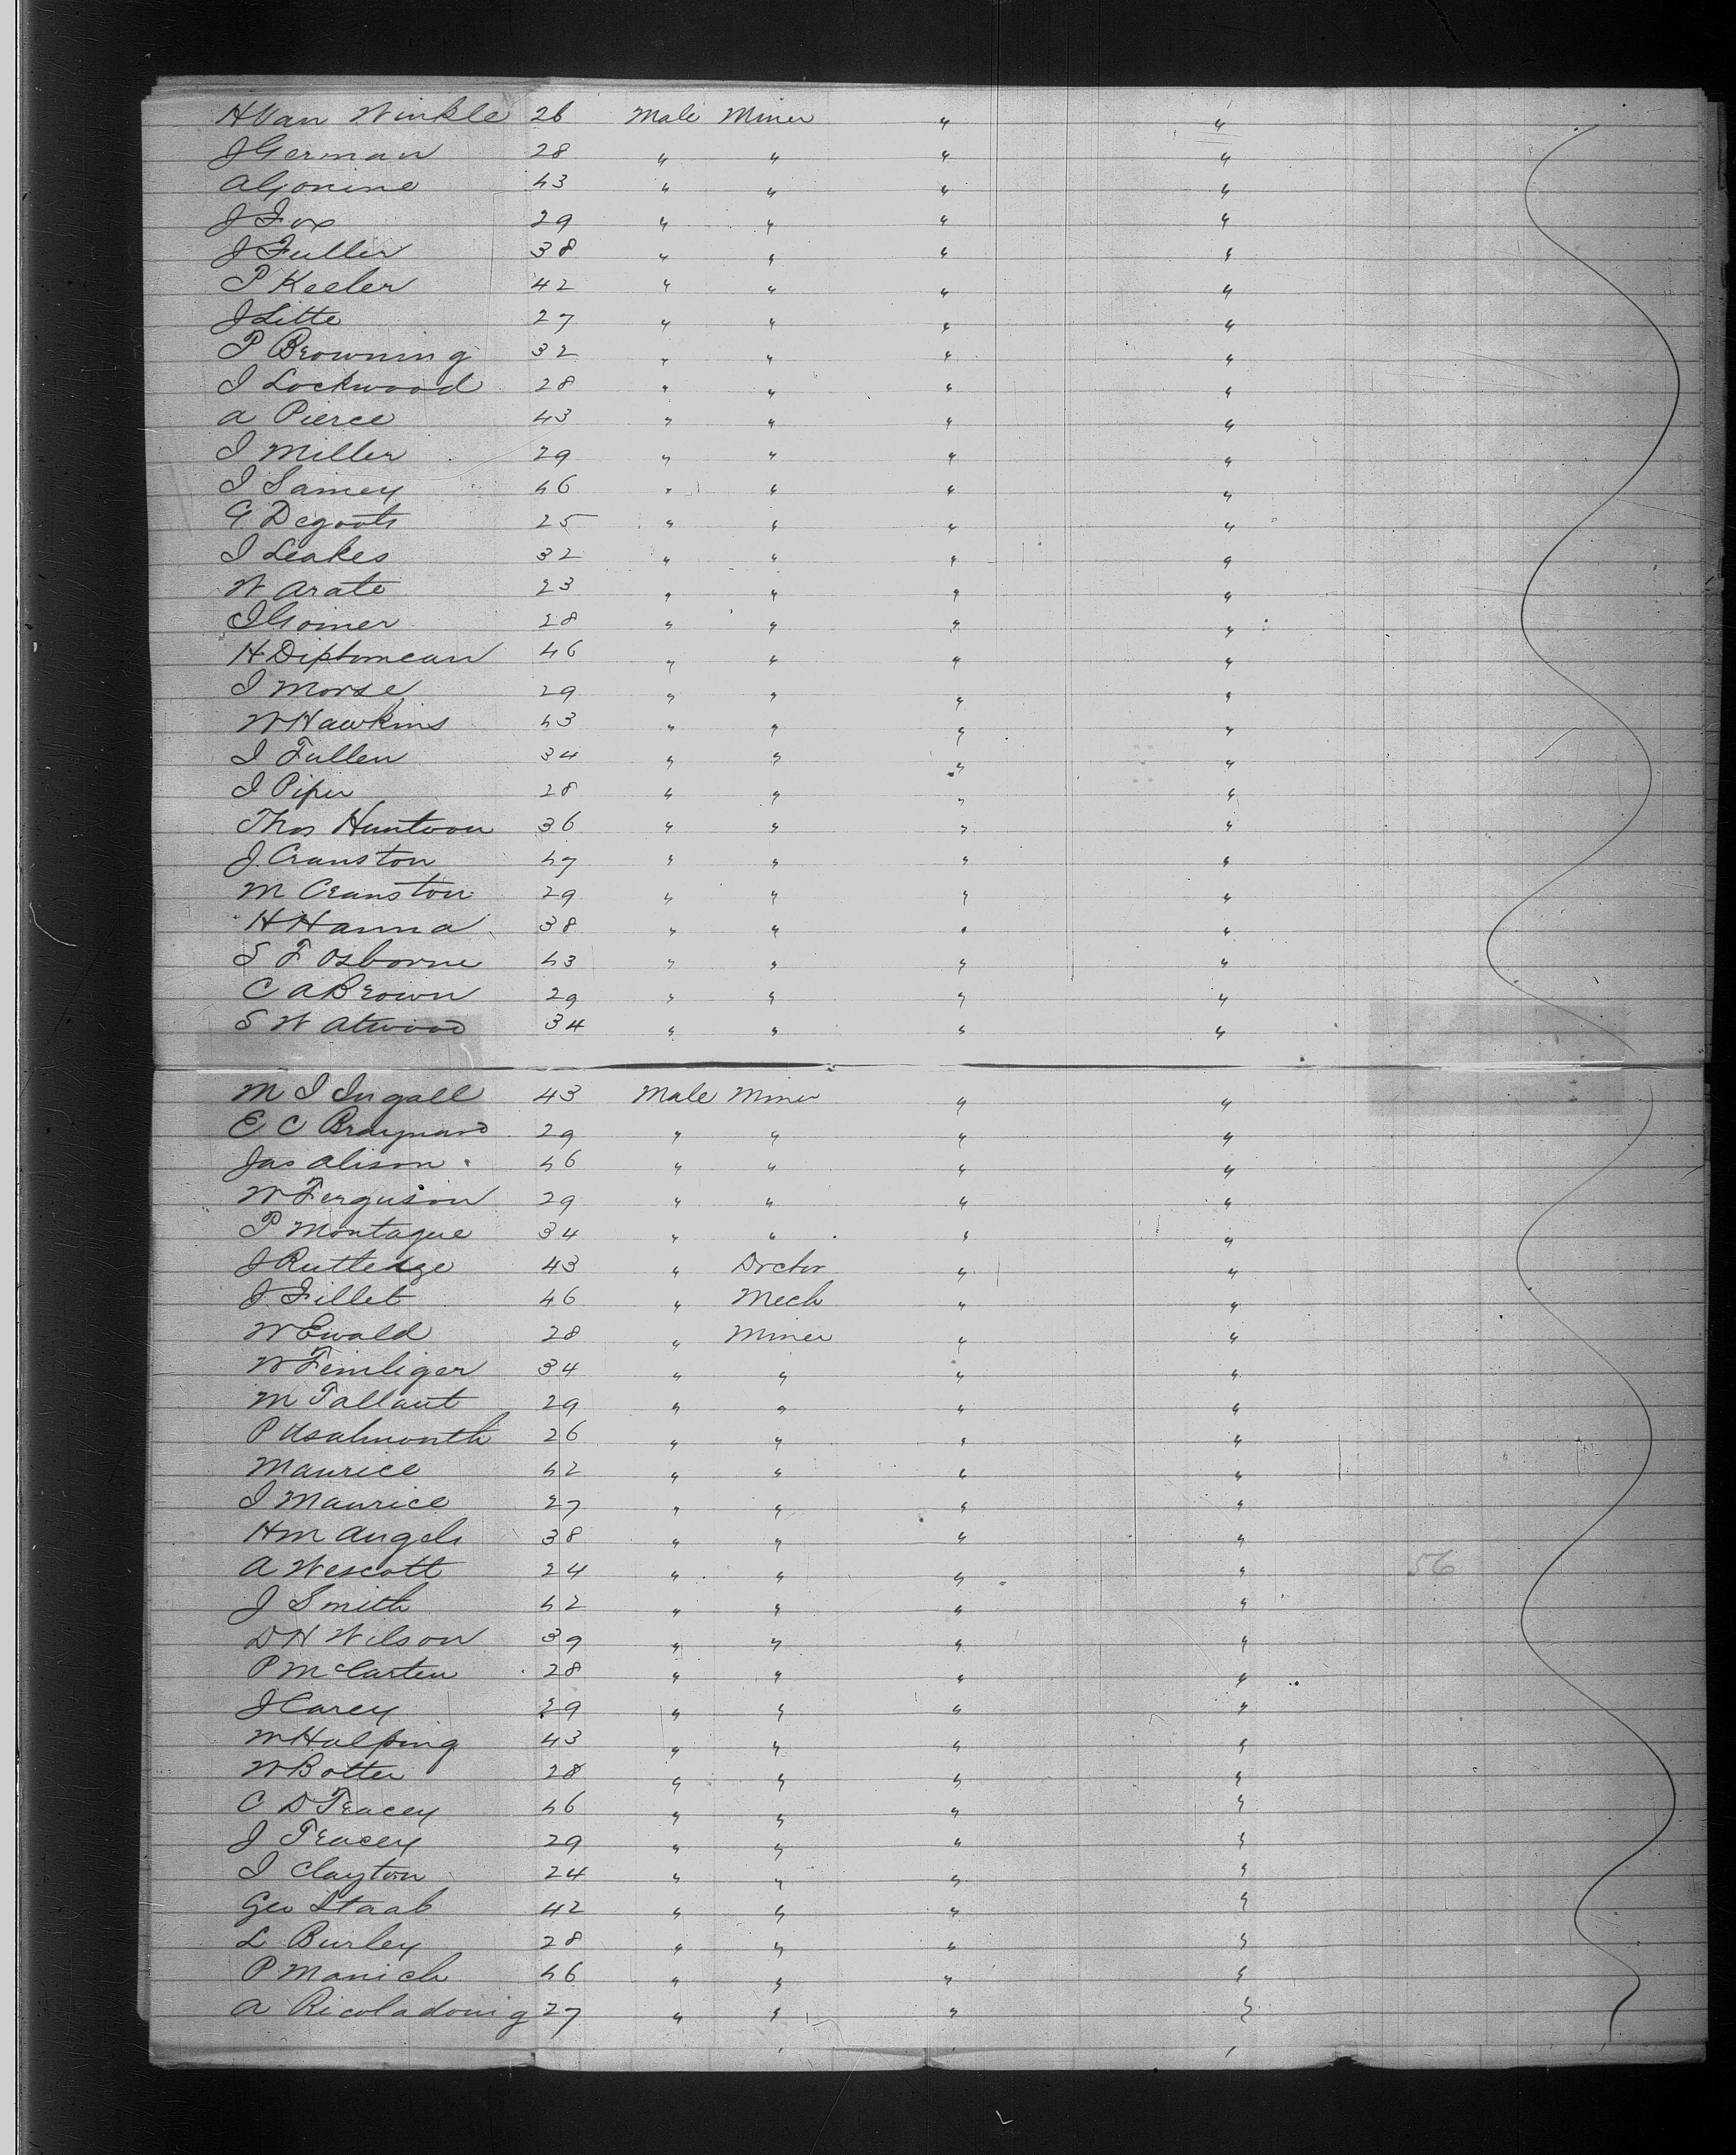 H Van Winkle 26 Male Miner " "
J German 28 " " " "
A Gonine 43 " " " "
J Fox 29 " " " "
J Fuller 38 " " " "
P Keeler 42 " " " "
J Litte 27 " " " "
P Browning 32 " " " "
I Lockwood 28 " " " "
A Pierce 43 " " " "
I Miller 29 " " " "
I Samey 46 " " " "
G Degoots 25 " " " "
I Leakes 32 " " " "
W Arate 23 " " " "
I Gomer 28 " " " "
H Diptomeau 46 " " " "
I Morse 29 " " " "
W Hawkins 43 " " " "
I Fullen 34 " " " "
I Piper 28 " " " "
Thos Huntoon 36 " " " "
J. Cranston 47 " " " "
M Cranston 29 " " " "
H Hanna 38 " " " "
S F Osborne 43 " " " "
C A Brown 29 " " " "
S W Atwood 34 " " " "
M I Ingall 43 Male Miner " "
E C Braynard 29 " " " "
Jas Alison 46 " " " "
W Ferguson 29 " " " "
P Montague 34 " " " "
J Rutledge 43 " Doctor " "
J. Fillet 46 " Mech " "
W Ewald 28 " Miner " "
W Feinliger 34 " " " "
M Tallant 29 " " " "
P 26 " " " "
Maurice 42 " " " "
I Maurice 27 " " " "
H M Angels 38 " " " "
A Wescott 24 " " " " 56
J Smith 42 " " " "
D H Wilson 39 " " " "
P McCarten 28 " " " "
J Carey 29 " " " "
W Halping 43 " " " "
W Botter 28 " " " "
C D Tracey 46 " " " "
J Tracey 29 " " " "
I Clayton 24 " " " "
Geo Staab 42 " " " "
L Burley 28 " " " "
P Manich 46 " " " "
A Ricoladonig 27 " " " "